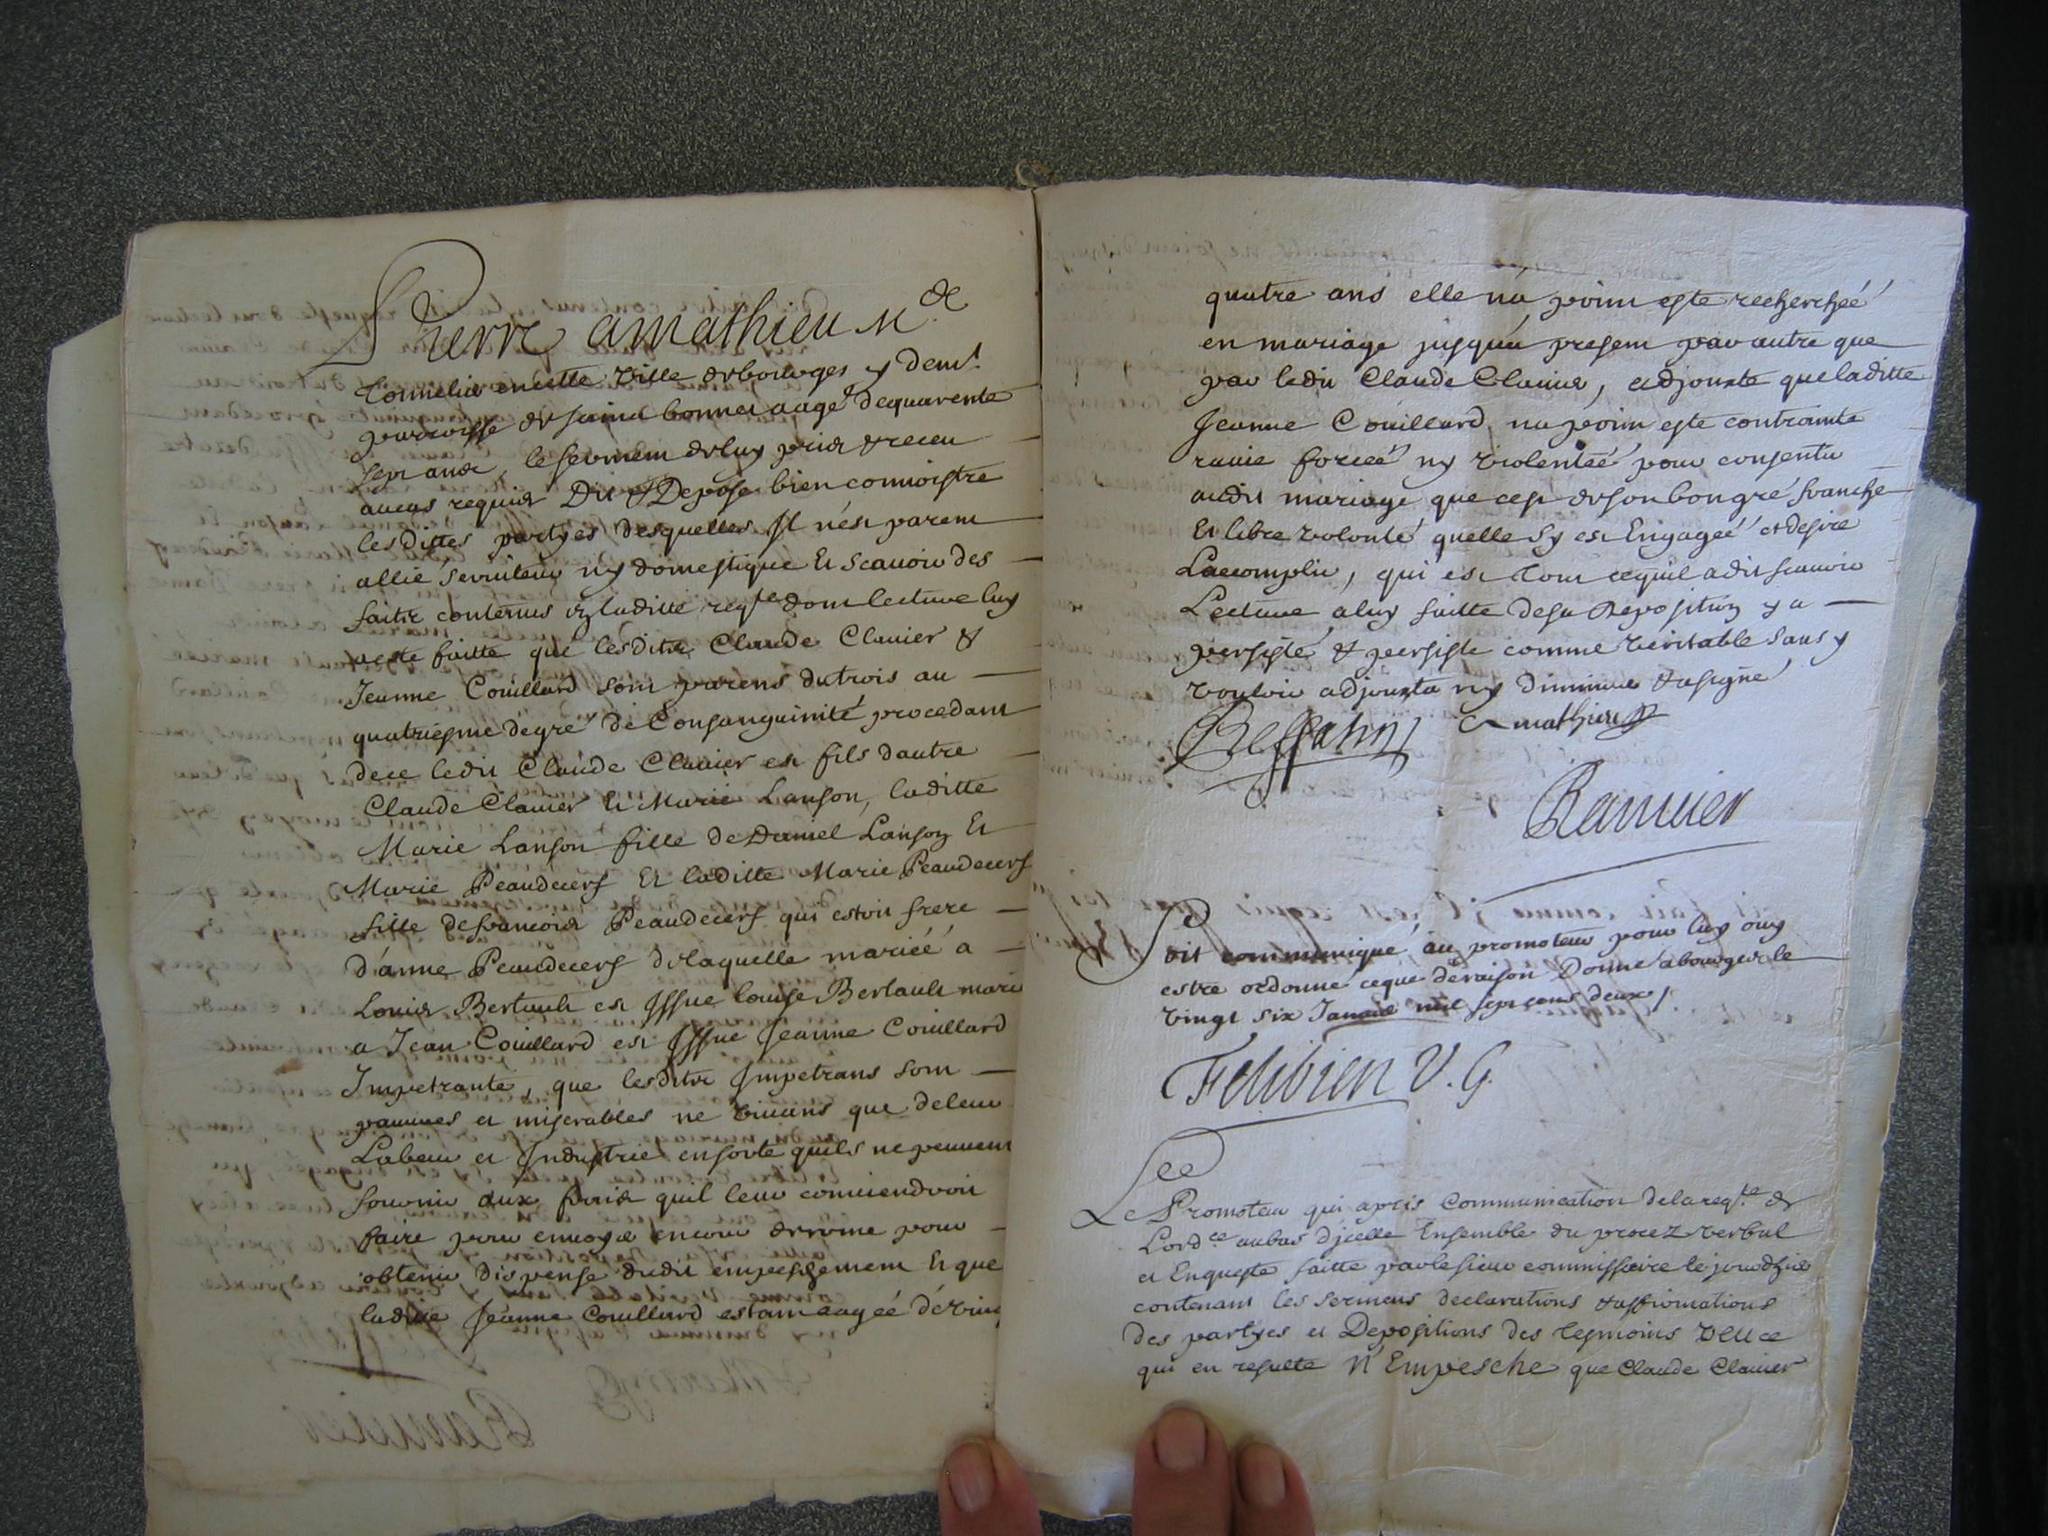 Pierre amathieu M.de
Tonnelier en cette ville de bourges y dem.t
parroisse de Saint bonnet aagé de quarente
sept ans, le serment de luy pris & receu
au cas requis Dit & Depose bien connoistre
lesdittes partyes desquelles Il n'est parent
allié serviteur ny domestique Et scavoir des
faits contenus en laditte reqte dont lecture luy
a este faitte que lesdits Claude Clavier &
Jeanne Couillard sont parens du trois au
quatriesme degré de Consanguinité procedant
de ce ledit Claude Clavier est fils dautre
Claude Clavier Et Marie Lanson, laditte
Marie Lanson fille de Daniel Lanson Et
Marie Peaudecerf Et laditte Marie Peaudecerf
fille de francois Peaudecerf qui estoit frere
d'anne Peaudecerf de laquelle mariéé a
Louis Bertault est Issue louise Bertault marie
a Jean Couillard est Issue Jeanne Couillard
Impetrante, que lesdits Impetrans sont
pauvres et miserables ne vivans que de leur
Labeur et Industrie en sorte quils ne peuvent
fournir aux frais quil leur conviendroit
faire pour envoyer en cour de rome pour
obtenir dispense dudit empeschement Et que
ladite Jeanne Couillard estant aagéé de vint
quatre ans elle na point este recherchéé
en mariage jusqua present par autre que
par ledit Claude Clavier, adjouxte que laditte
Jeanne Couillard na point este contrainte
ravie forcéé ny violentéé pour consentir
audit mariage que cest de son bon gré franche
Et libre volonté quelle sy est Engagéé et desire
Laccomplir, qui est tout ce quil a dit scavoir
Lecture a luy faitte de sa Deposition y a
persisté & persiste comme veritable sans y
vouloir adjouxter ny diminuer & a signé
Amathieu
Ranvier
Soit communiqué au promoteur pour luy ouy
estre ordonné ce que de raison Donne a bourges le
vingt six Janvier mil sept cens deux
Felibien V. G.
Veu
Le Promoteur qui apres communication de la reqte &
Lordce au bas d'icelle Ensemble du procez verbal
et Enqueste faitte par le sieur commissaire le jourdhuy
contenant les sermens declarations & affirmations
des partyes et Depositions des tesmoins veu ce
qui en resulte N'Empesche que Claude Clavier